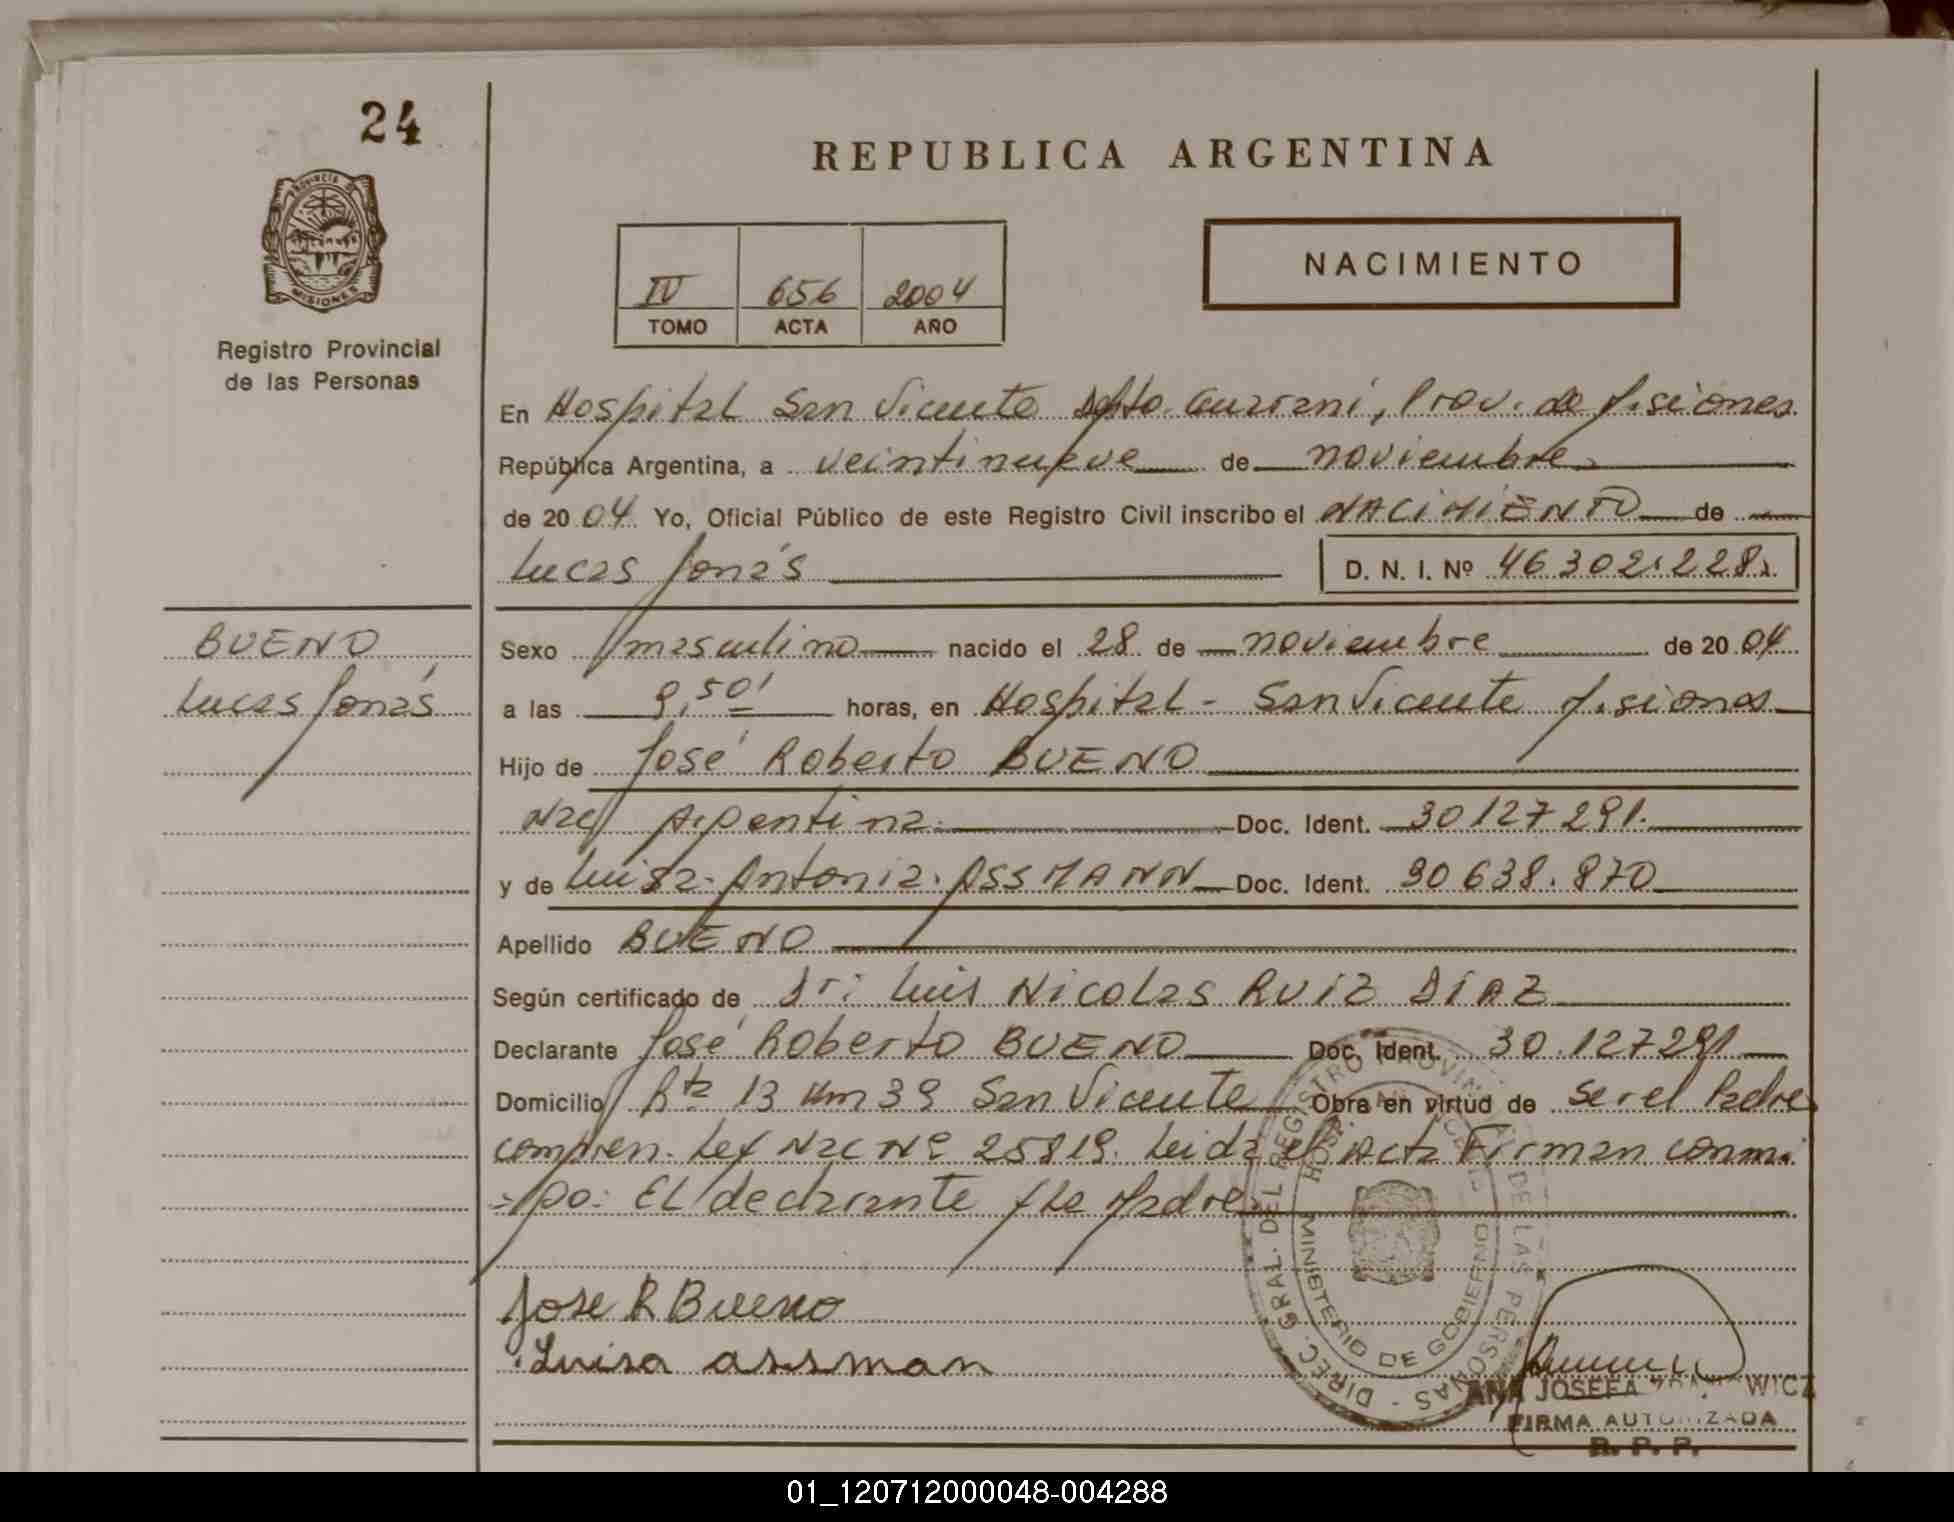 24
REPUBLICA ARGENTINA
PROVINCIA DE
MISIONES
Registro Provincial
de las Personas
IV 656 2004
TOMO ACTA AÑO
NACIMIENTO
En Hospital San Vicente Dpto. Guaraní, Prov. de Misiones
República Argentina, a veintinueve de noviembre
de 2004 Yo, Oficial Público de este Registro Civil inscribo el NACIMIENTO de
Lucas Jonás
D. N. I. Nº 46302.228.
BUENO
Lucas Jonás
Sexo masculino nacido el 28 de noviembre de 2004
a las 9,50' horas, en Hospital - San Vicente Misiones
Hijo de José Roberto BUENO
Nac Argentina. Doc. Ident. 30127291.
y de Luisa Antonia ASSMANN Doc. Ident. 30638.870
Apellido BUENO
Según certificado de Dr: Luis Nicolas RUIZ DIAZ
Declarante José Roberto BUENO Doc. Ident. 30.127291
Domicilio Rta 13 Km 39 San Vicente Obra en virtud de ser el Padre
compren. Ley Nac Nº 25819. Leida el Acta Firman conmi
=go: EL declarante y la Madre
Jose R Bueno
Luisa assman
DIREC. GRAL. DEL REGISTRO PROVINCIAL DE LAS PERSONAS
MINISTERIO DE GOBIERNO
ANA JOSEFA
FIRMA AUTORIZADA
R. P. P.
01_120712000048-004288